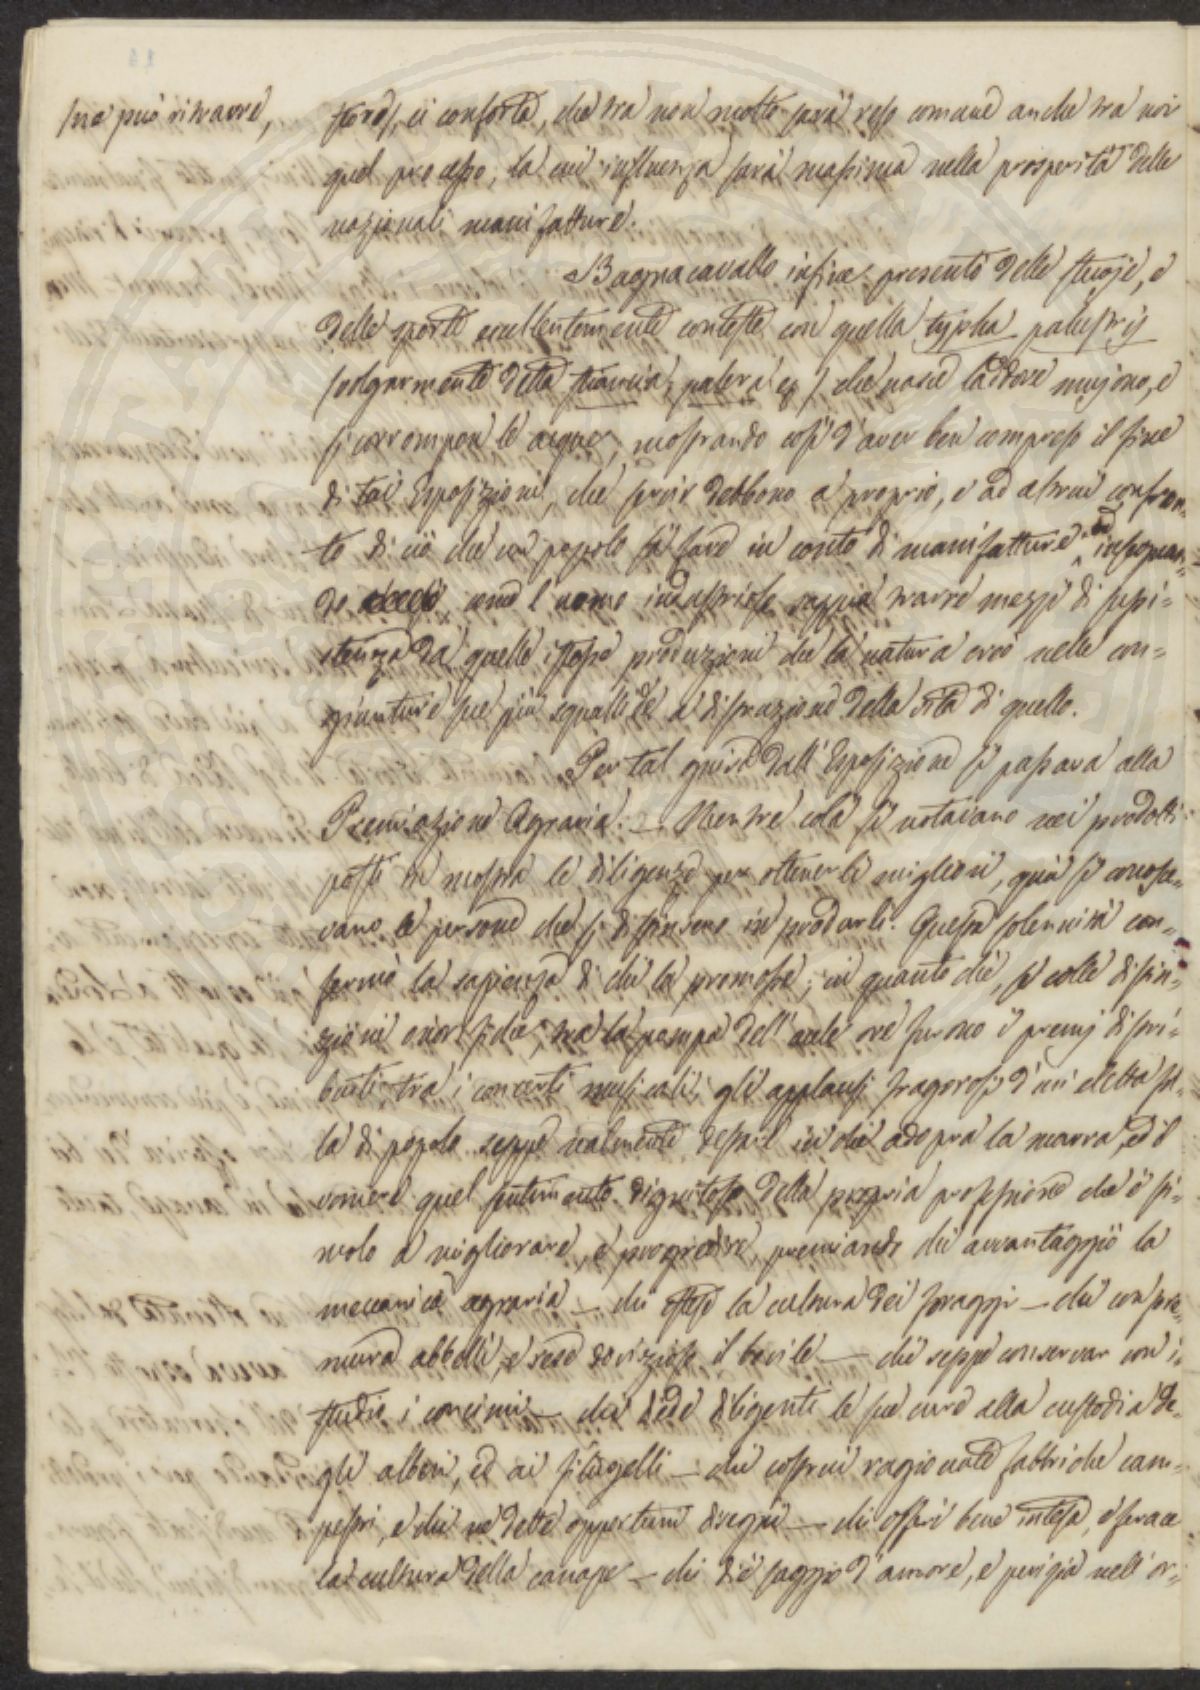 ne può ritrarre,
ci conforta, che tra non molto sarà reso comune anche tra noi
quel processo, la cui influenza sarà massima nella prosperità delle
nazionali manifatture.
Bagnacavallo infine presentò delle stuoje, e
delle sporte eccellentemente conteste con quella typha palustris
(volgarmente detta pavera) che nasce laddove muojono, e
si corrompon le acque, mostrando così d'aver ben compreso il fine
di tai Esposizioni, che servir debbono a proprio, e ad altrui confron-
to di ciò che un popolo sa fare in conto di manifatture ed insegnan-
do come l'uomo industrioso sappia trarre mezzi di sussi-
stenza da quelle istesse produzioni che la natura creò nelle con-
giunture sue più squallide a distruzione della vita di quello.
Per tal guisa dall'Esposizione si passava alla
Premiazione Agraria. — Mentre colà si notavano nei prodotti
posti in mostra le diligenze per ottenerli migliori, quà si conosce-
vano le persone che si distinsero in produrli. Questa solennità con-
fermò la sapienza di chi la promosse, in quanto che, sì colle distin-
zioni onorifiche, tra la pompa dell'aule ove furono i premj distri-
buiti tra i concerti musicali, gli applausi fragorosi d'un eletta fol-
la di popolo seppe realmente destar in chi adopra la marra, ed il
vomere quel sentimento dignitoso della propria professione che è sti-
molo a migliorare, e progredire, premiando chi avvantaggiò la
meccanica agraria — chi estese la cultura dei foraggi — chi con pre-
mura abbellì, e rese dovizioso il bovile — chi seppe conservar con i-
studio i concimi — chi diede diligenti le sue cure alla custodia de-
gli alberi, ed ai filugelli — chi costruì ragionate fabbriche cam-
pestri, e chi ne dette opportuni disegni — chi offrì bene intesa, e ferace
la cultura della canape — chi diè saggio d'amore, e perizia nell'or-